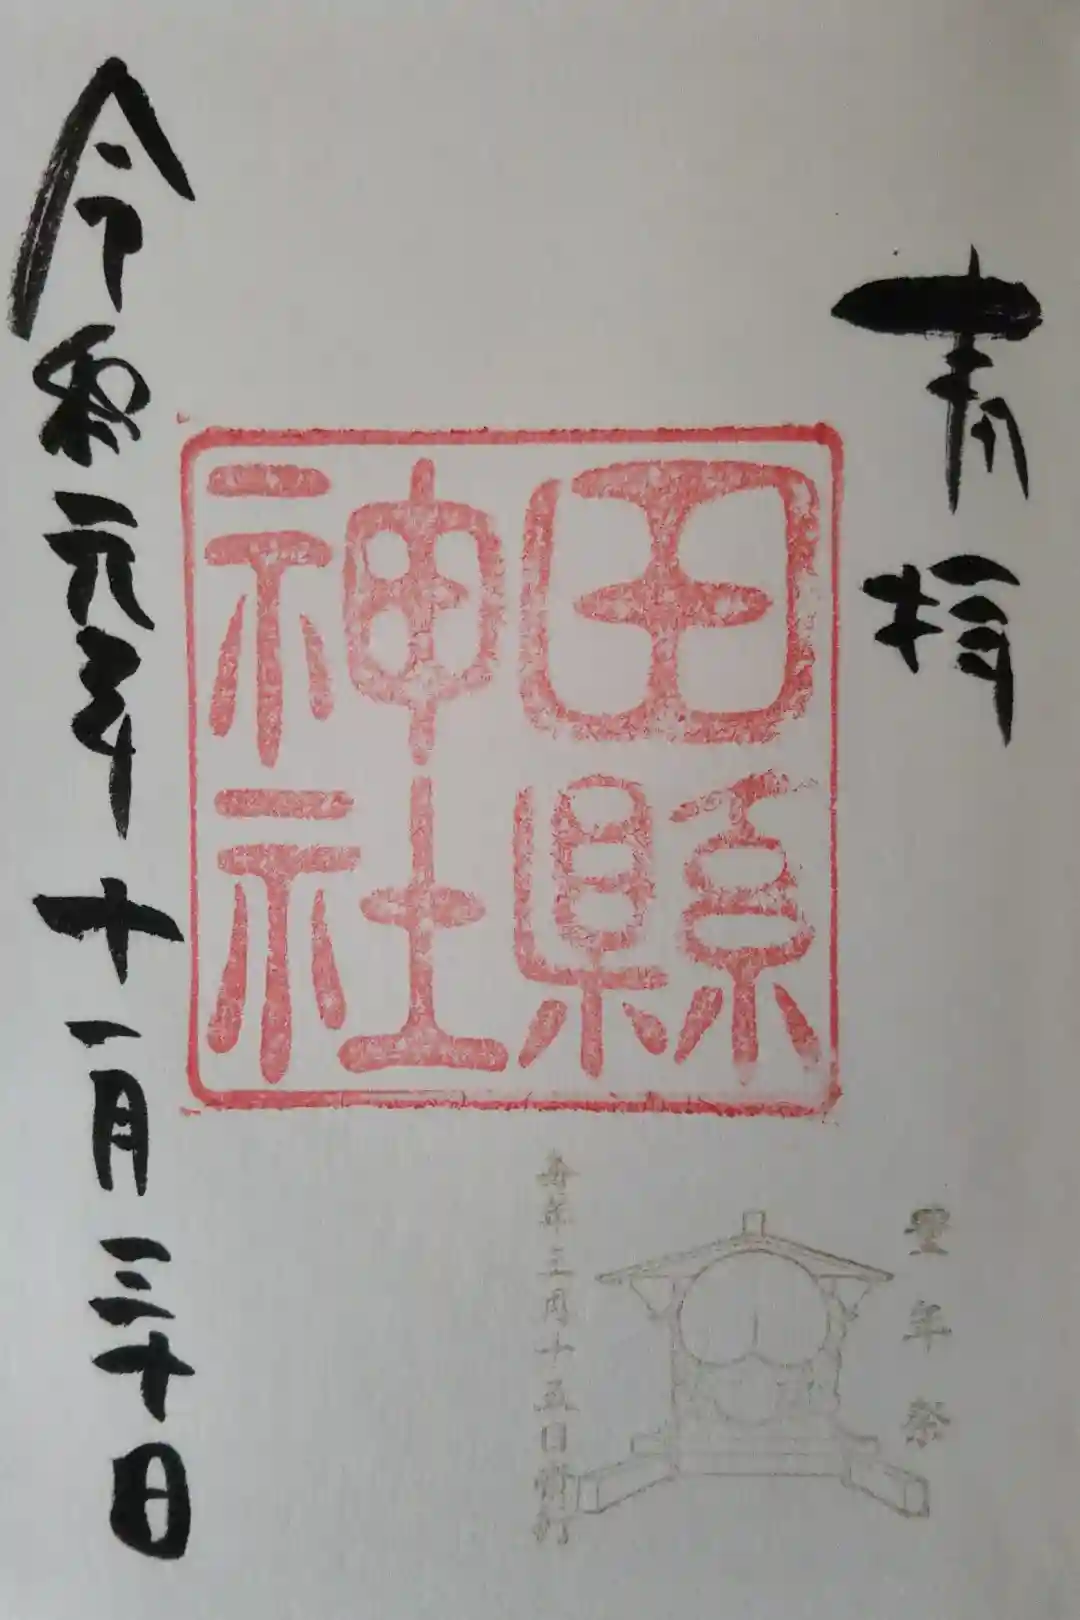 奉拝
田縣
神社
豊年祭
毎年三月十五日斎行
令和元年十一月三十日